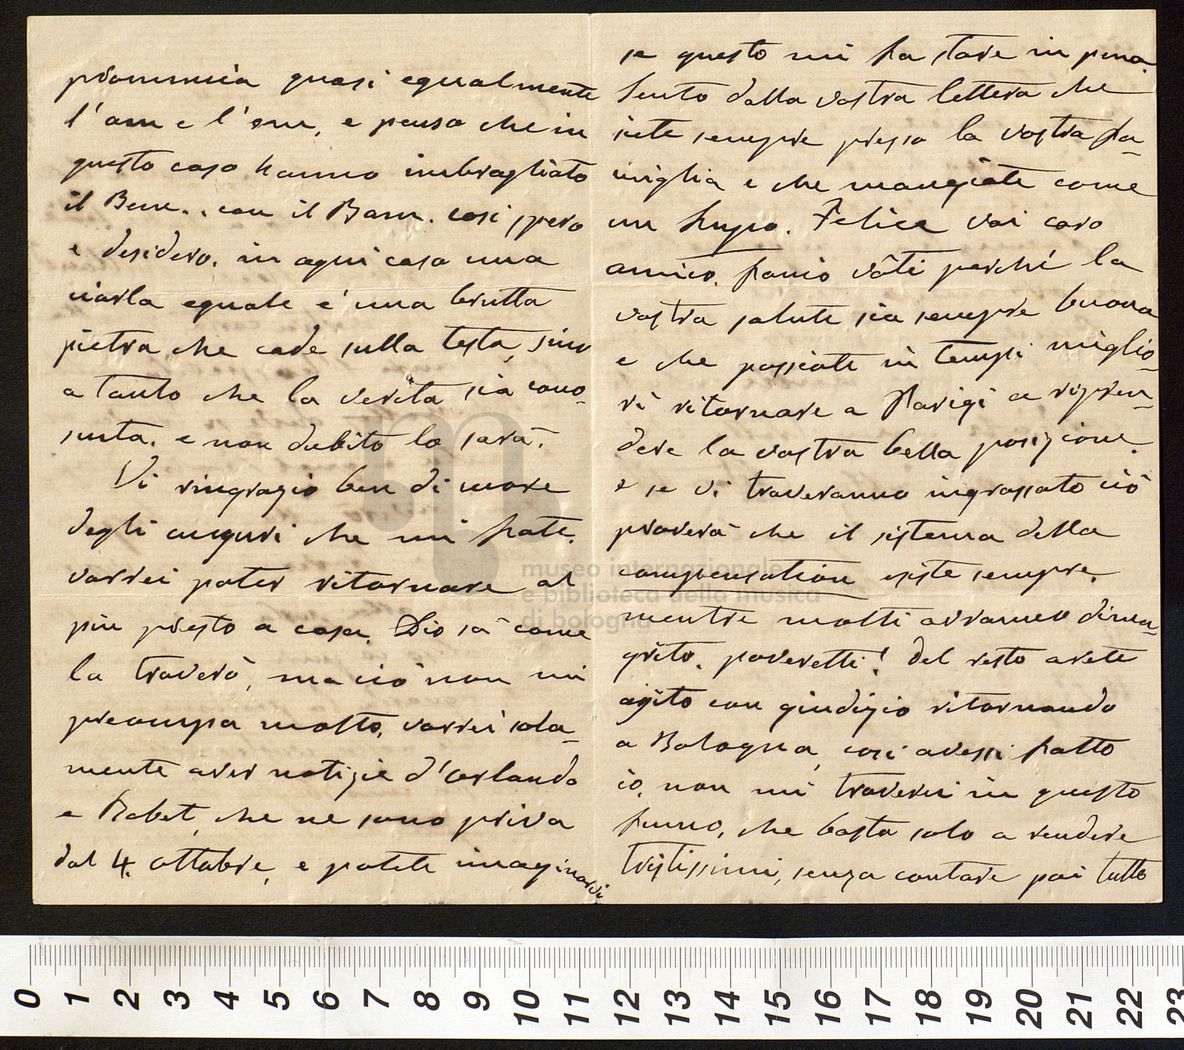 pronuncia quasi egualmente
l'am e l'em, e penso che in
questo caso hanno imbragliato
il Bem.. con il Bam. così spero
e desidero. in agni caso una
ciarla eguale e' una brutta
pietra che cade sulla testa, sino
a tanto che la verita sia cono-
sciuta. e non dubito lo sarà.
Vi ringrazio ben di more
degli auguri che mi fate.
vorrei poter ritornare al
più presto a casa. Dio sà come
la troverò, ma ciò non mi
preoccupa molto. vorrei sola-
mente aver notizie d'Orlando
e Babet, che ne sono priva
dal 4. ottobre, e potete imaginarvi
se questo mi fa stare in pena.
Sento dalla vostra lettera che
siete sempre presso la vostra fa-
miglia e che mangiate come
un lupo. Felice voi caro
amico. faccio vôti perché la
vostra salute sia sempre buona
e che possiate in tempi miglio-
ri ritornare a Parigi a ripren-
dere la vostra bella posizione.
e se vi troveranno ingrassato ciò
proverà che il sistema della
compensation esiste sempre.
mentre molti avranno dima-
grito. poveretti! Del resto avete
agito con giudizio ritornando
a Bologna, così avessi fatto
io, non mi troverei in questo
fumo, che basta solo a rendere
tristissimi, senza contare poi tutto
museo internazionale
e biblioteca della musica
di bologna
0 1 2 3 4 5 6 7 8 9 10 11 12 13 14 15 16 17 18 19 20 21 22 23